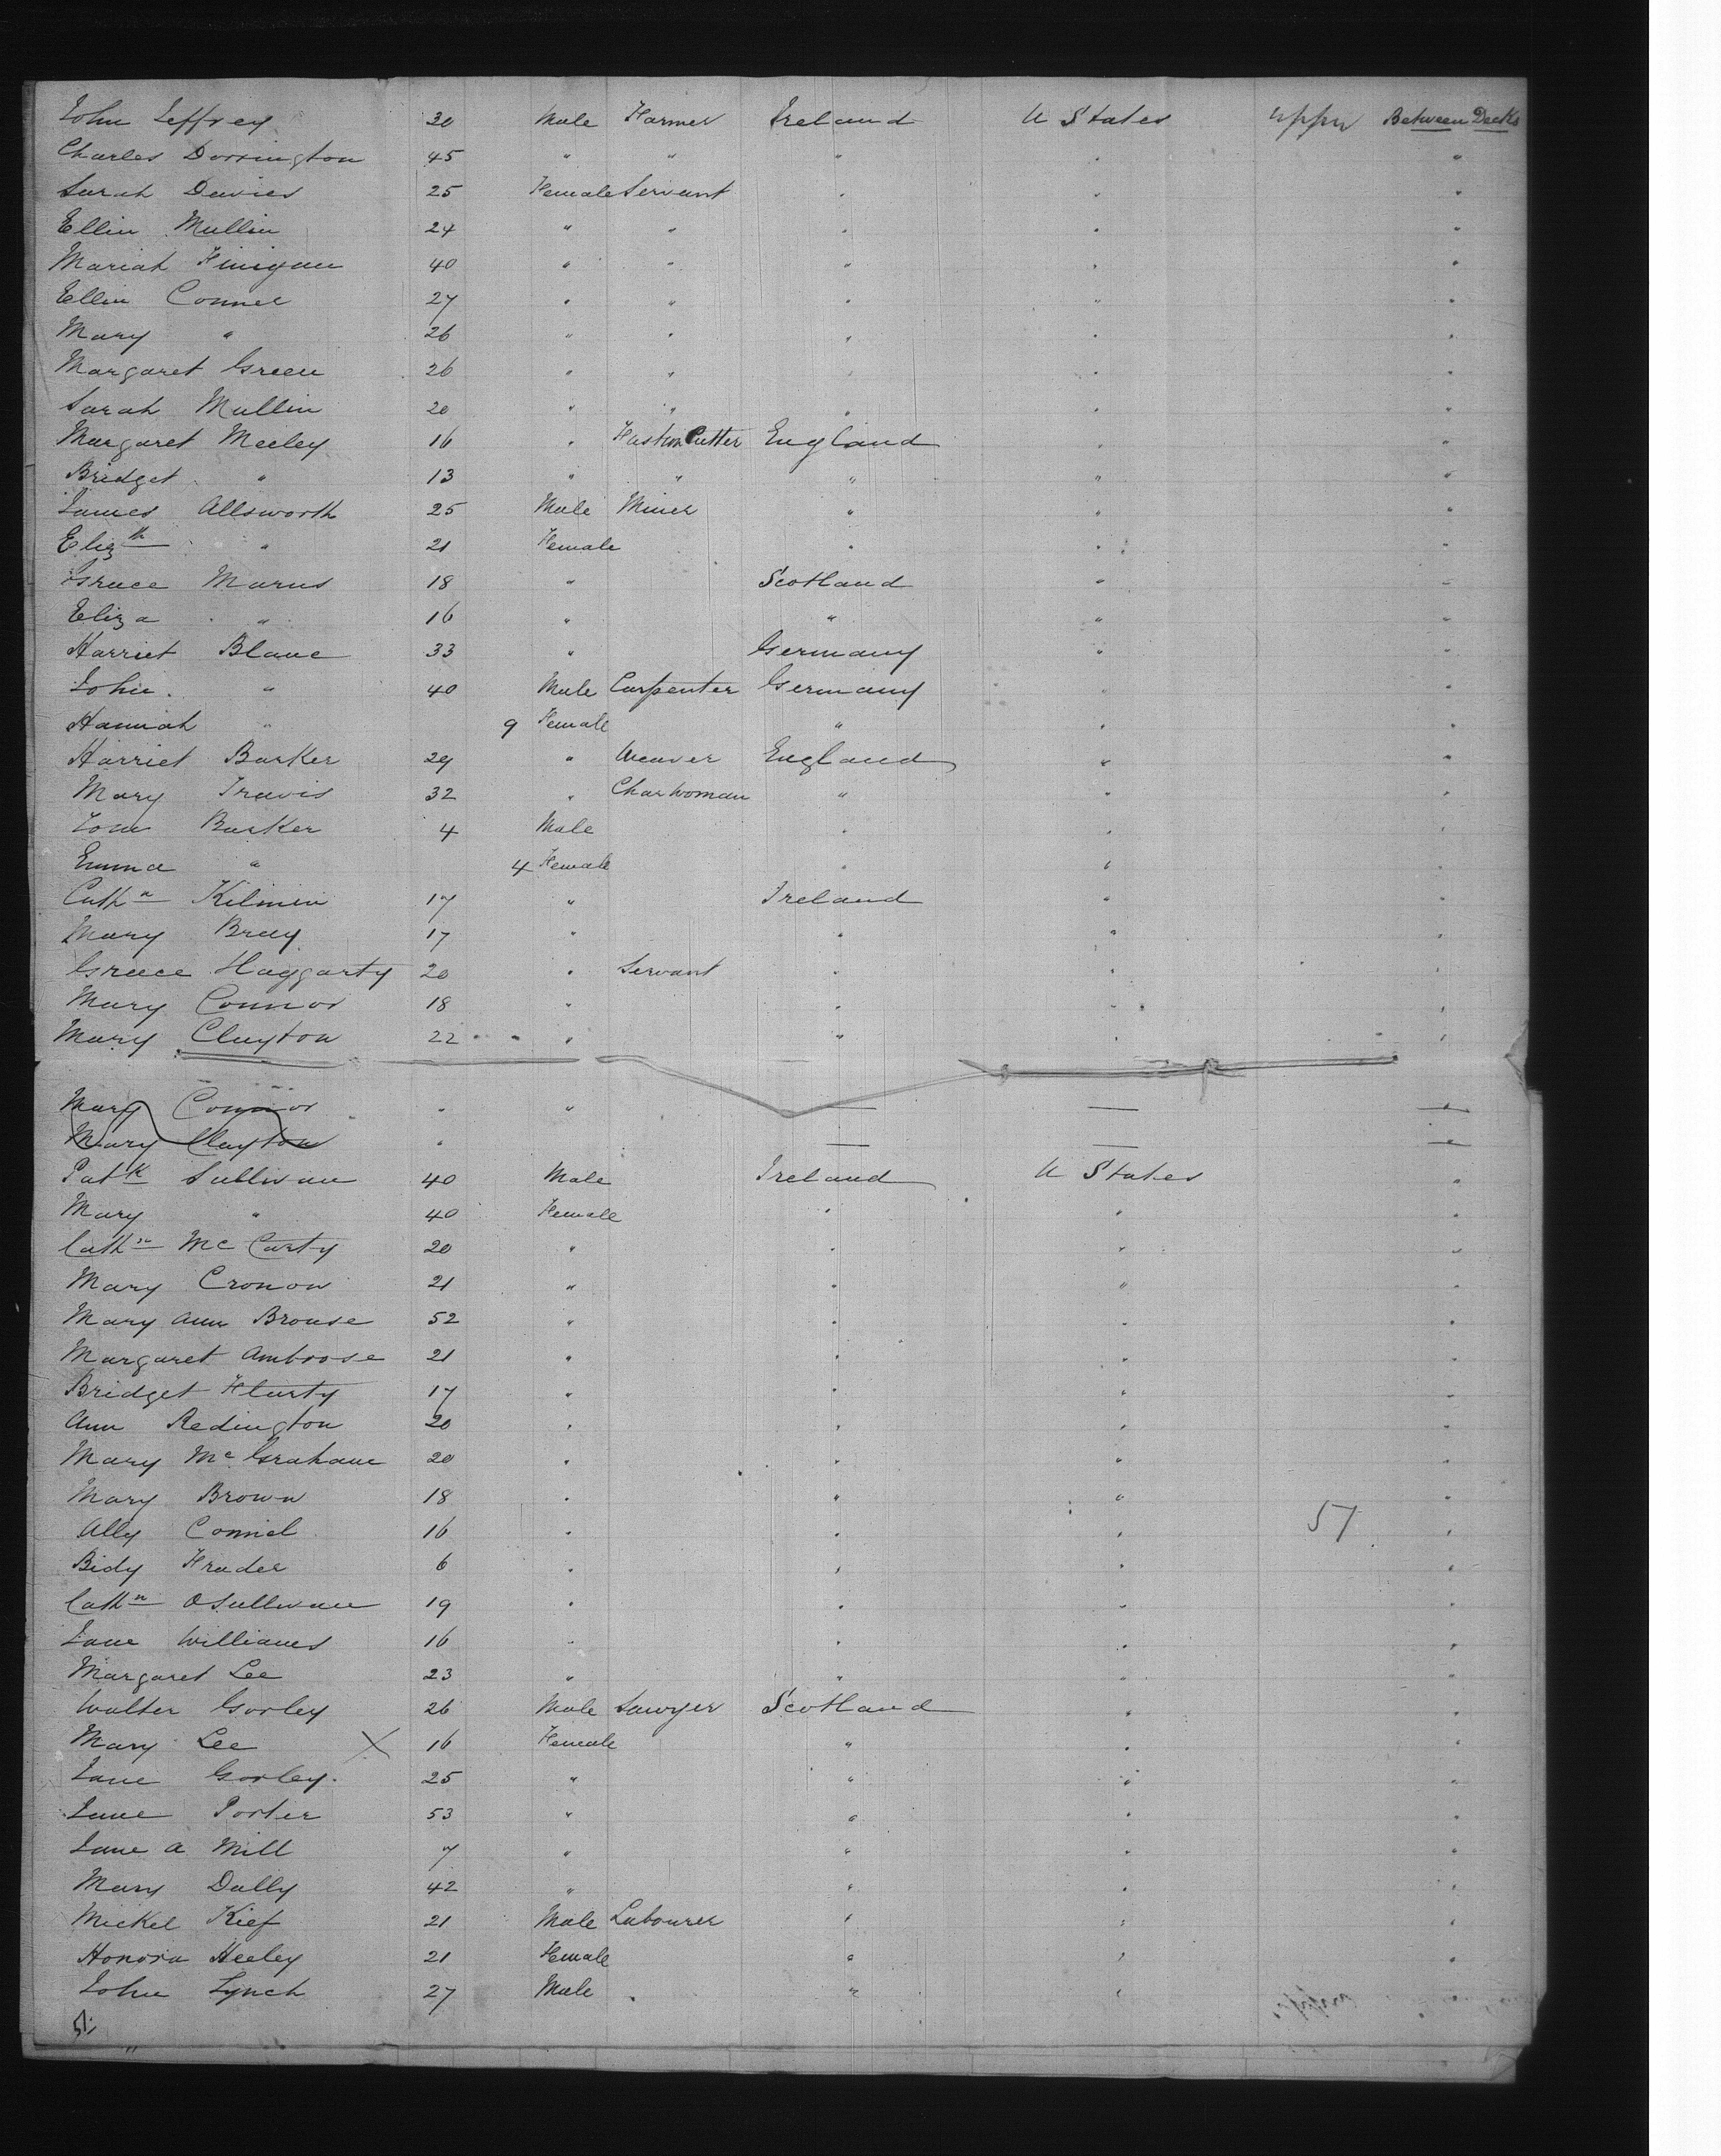 John Jeffrey 30 Male Farmer Ireland U States Upper Between Decks
Charles Dorrington 45 " " " " "
Sarah Davies 25 Female Servant " " "
Ellin Mullin 24 " " " " "
Mariah Finigan 40 " " " " "
Ellin Connel 27 " " " " "
Mary " 26 " " " " "
Margaret Green 26 " " " " "
Sarah Mullin 20 " " " " "
Margaret Meeley 16 " Fustian Cutter England " "
Bridget " 13 " " " " "
James Allsworth 25 Male Miner " " "
Eliz th " 21 Female " " "
Grace Marus 18 " Scotland " "
Eliza " 16 " " " "
Harriet Blane 33 " Germany " "
John " 40 Male Carpenter Germany " "
Hannah " 9 Female " " "
Harriet Barker 29 " Weaver England " "
Mary Travis 32 " Charwoman " " "
Tom Barker 4 Male " " "
Emma " 4 Female " " "
Cath n Kilmin 17 " Ireland " "
Mary Bray 17 " " " "
Grace Haggarty 20 " Servant " " "
Mary Connor 18 " " " "
Mary Clayton 22 " " " "
Mary Connor " " — — —
Mary Clayton " — — —
Pat k Sullivan 40 Male Ireland U States "
Mary " 40 Female " " "
Cath n Mc Carty 20 " " " "
Mary Cronon 21 " " " "
Mary Ann Brouse 52 " " " "
Margaret Ambrose 21 " " " "
Bridget Flurty 17 " " " "
Ann Redington 20 " " " "
Mary Mc Grahame 20 " " " "
Mary Brown 18 " " " "
Ally Connel 16 " " " 57 "
Bidy Frader 6 " " " "
Cath n OSullivan 19 " " " "
Jane Williams 16 " " " "
Margaret Lee 23 " " " "
Walter Gorley 26 Male Sawyer Scotland " "
Mary Lee X 16 Female " " "
Jane Gorley 25 " " " "
Jane Porter 53 " " " "
Jane A Mill 7 " " " "
Mary Dally 42 " " " "
Mickel Kief 21 Male Labourer " " "
Honora Heeley 21 Female " " "
John Lynch 27 Male " " "